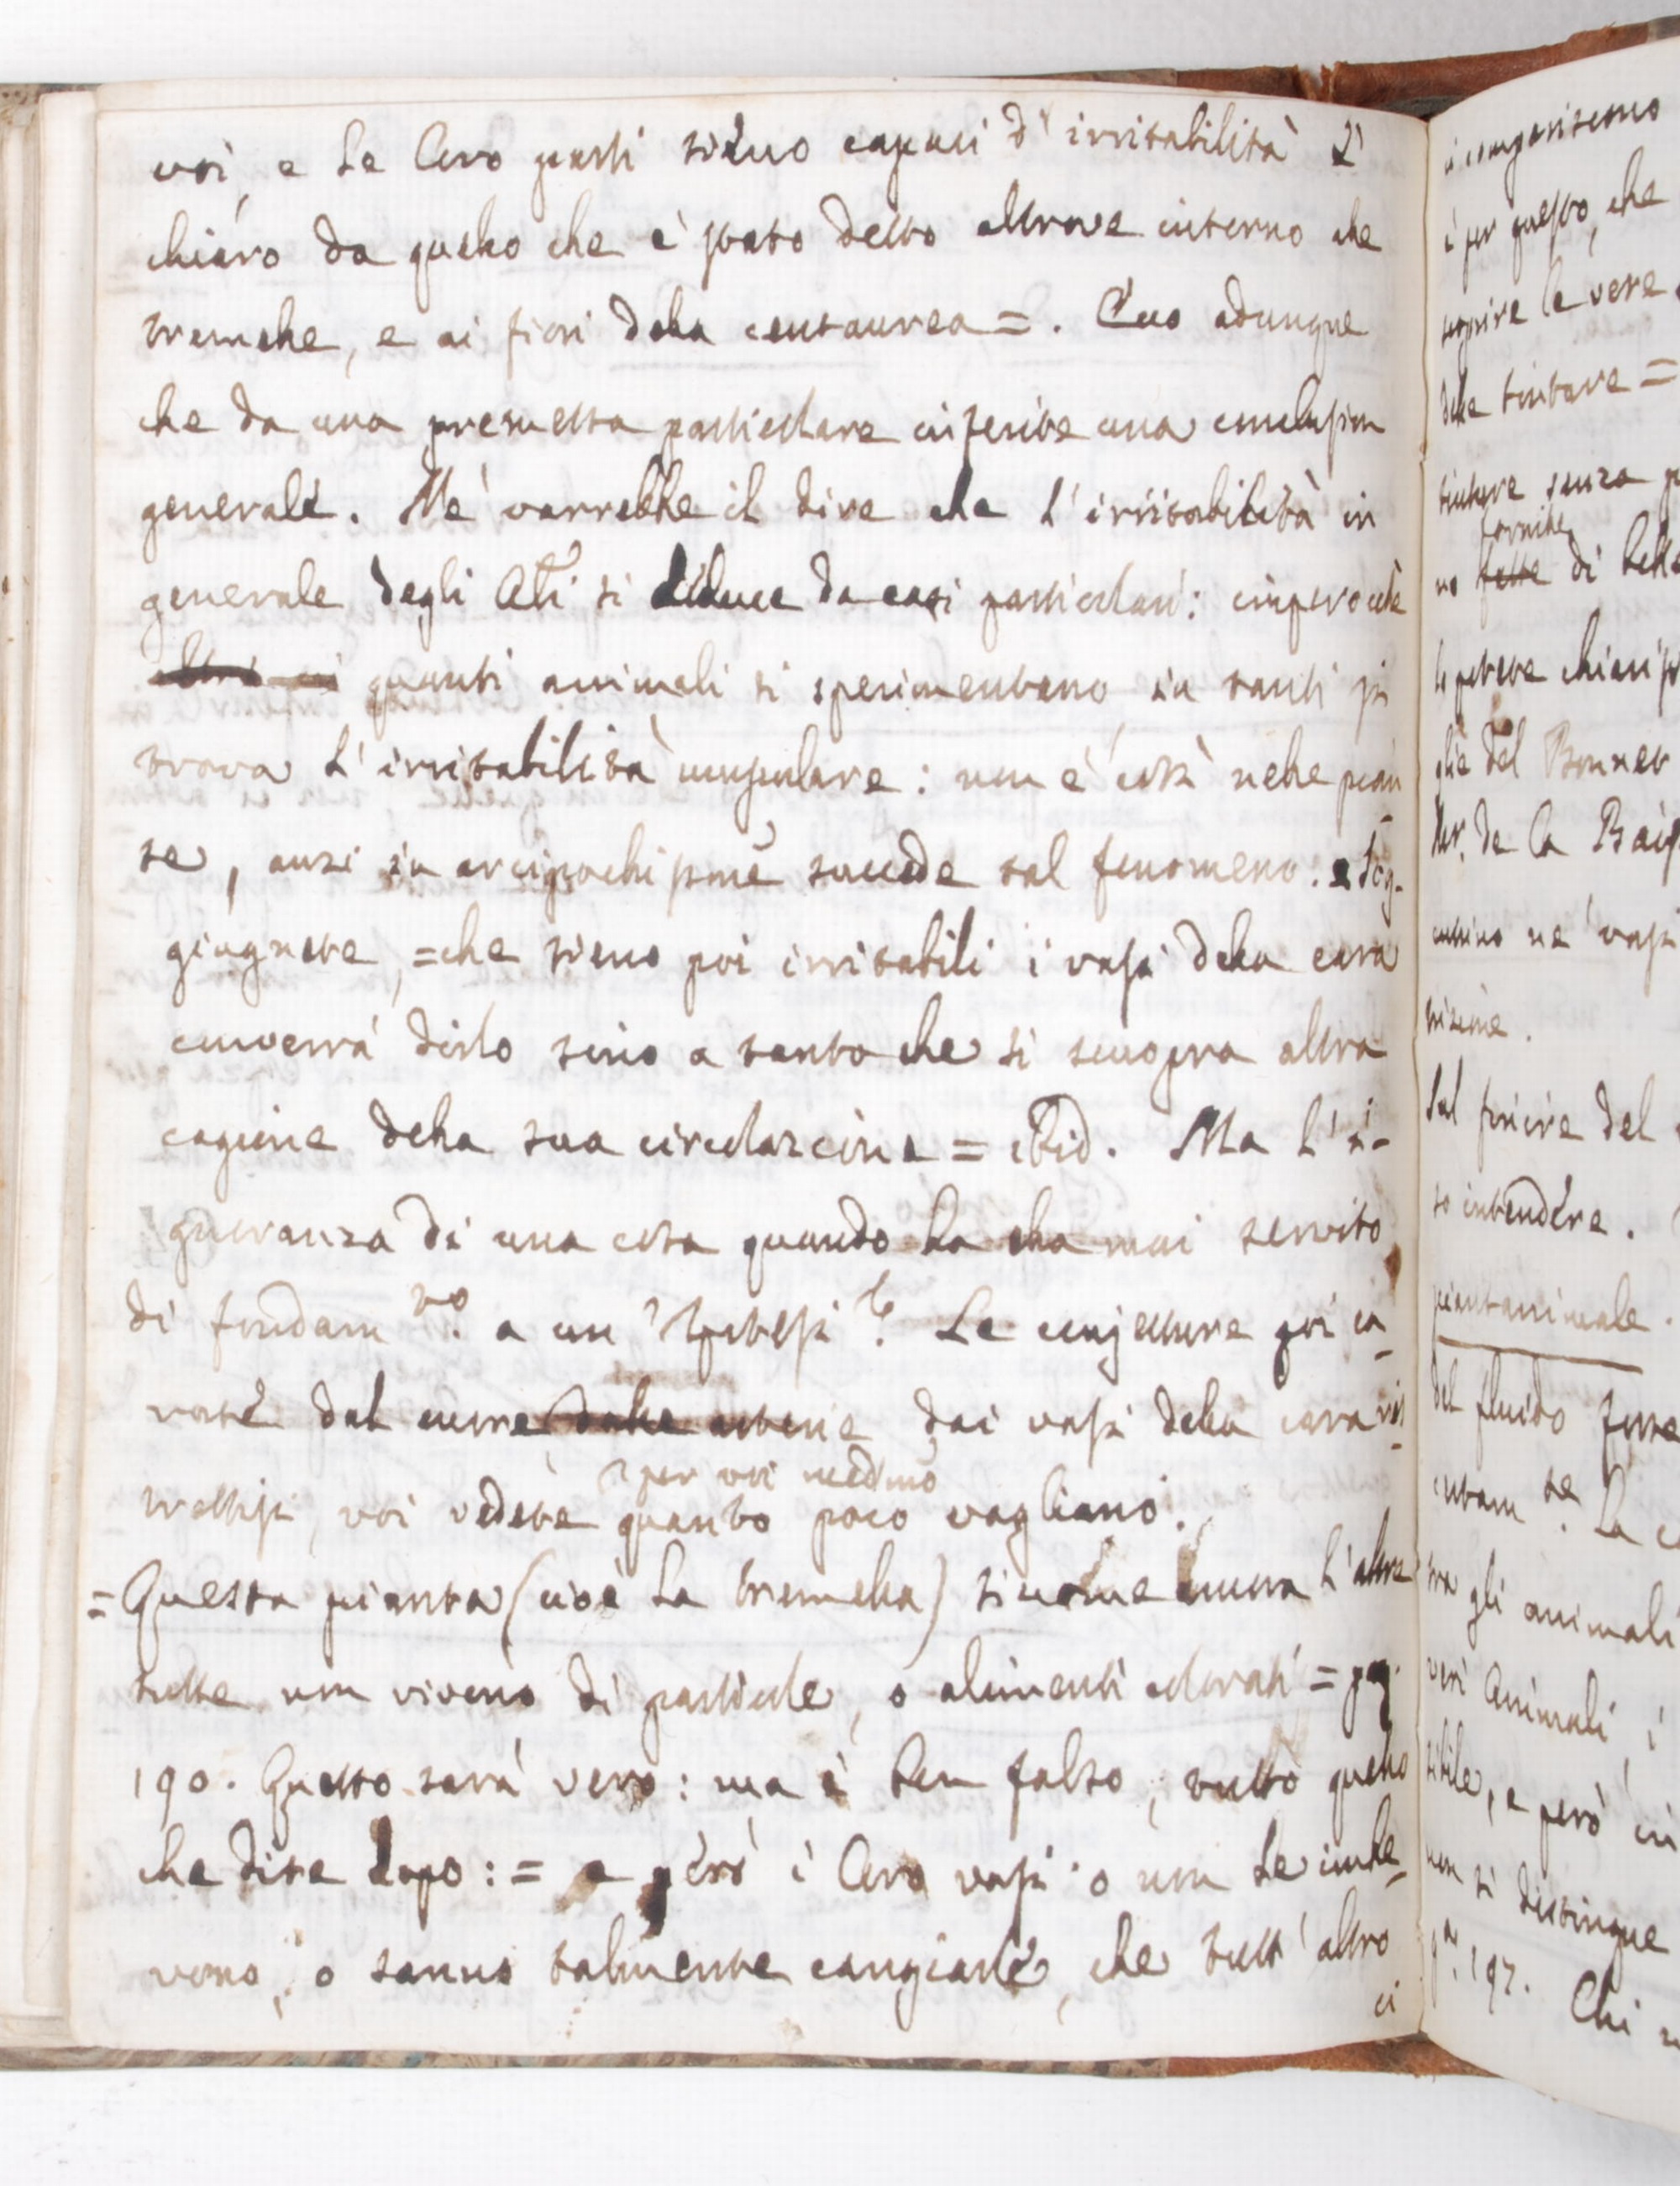 voi, e le loro parti sieno capaci d'irritabilità è
chiaro da quello che è stato detto altrove intorno che
tremelle, e ai fiori della centaurea =. Ecco adunque
che da una premessa particolare inferite una conclusion
generale. Nè varrebbe il dire che l'irritabilità in
generale degli Ali si deduce da casi particolari: imperocchè
quanti animali si sperimentano in tanti si
trova l'irritabilità muscolare: non è così nelle pian
te, anzi in arcipochissime succede tal fenomeno. e sog-
giugnete, = che sieno poi irritabili i vasi della cara
converrà dirlo sino a tanto che si scuopra altra
cagione della sua circolazione = ibid. Ma l'i-
gnoranza di una cosa quando ha ella mai servito
di fondam.to a un'Ipotesi? Le conjetture poi ca-
vate dal cuore dalle arterie dai vasi della cara ri-
trattisi, voi vedete quanto poco vagliano.
per voi medmo
= Questa pianta (cioè la tremella) siccome ancora l'altre
tutte non vivono di particole, o alimenti colorati = pag.
190. Questo sarà vero: ma è ben falso, tutto quello
che dite dopo: = e però i loro vasi o non le imbe-
vono, o sanno talmente cangiarle, che tutt'altro
ci
è per questo, che
scoprire le vere
delle tinture =
tinture senza
fornite
no fatte di
del Bonnet
de la Baisse
ne' vasi
Sul finire del
to intendere.
piantanimale.
del fluido forse
tra gli animali
veri Animali, i
sibile, e però in
non si distingue
pa. 197. Chi